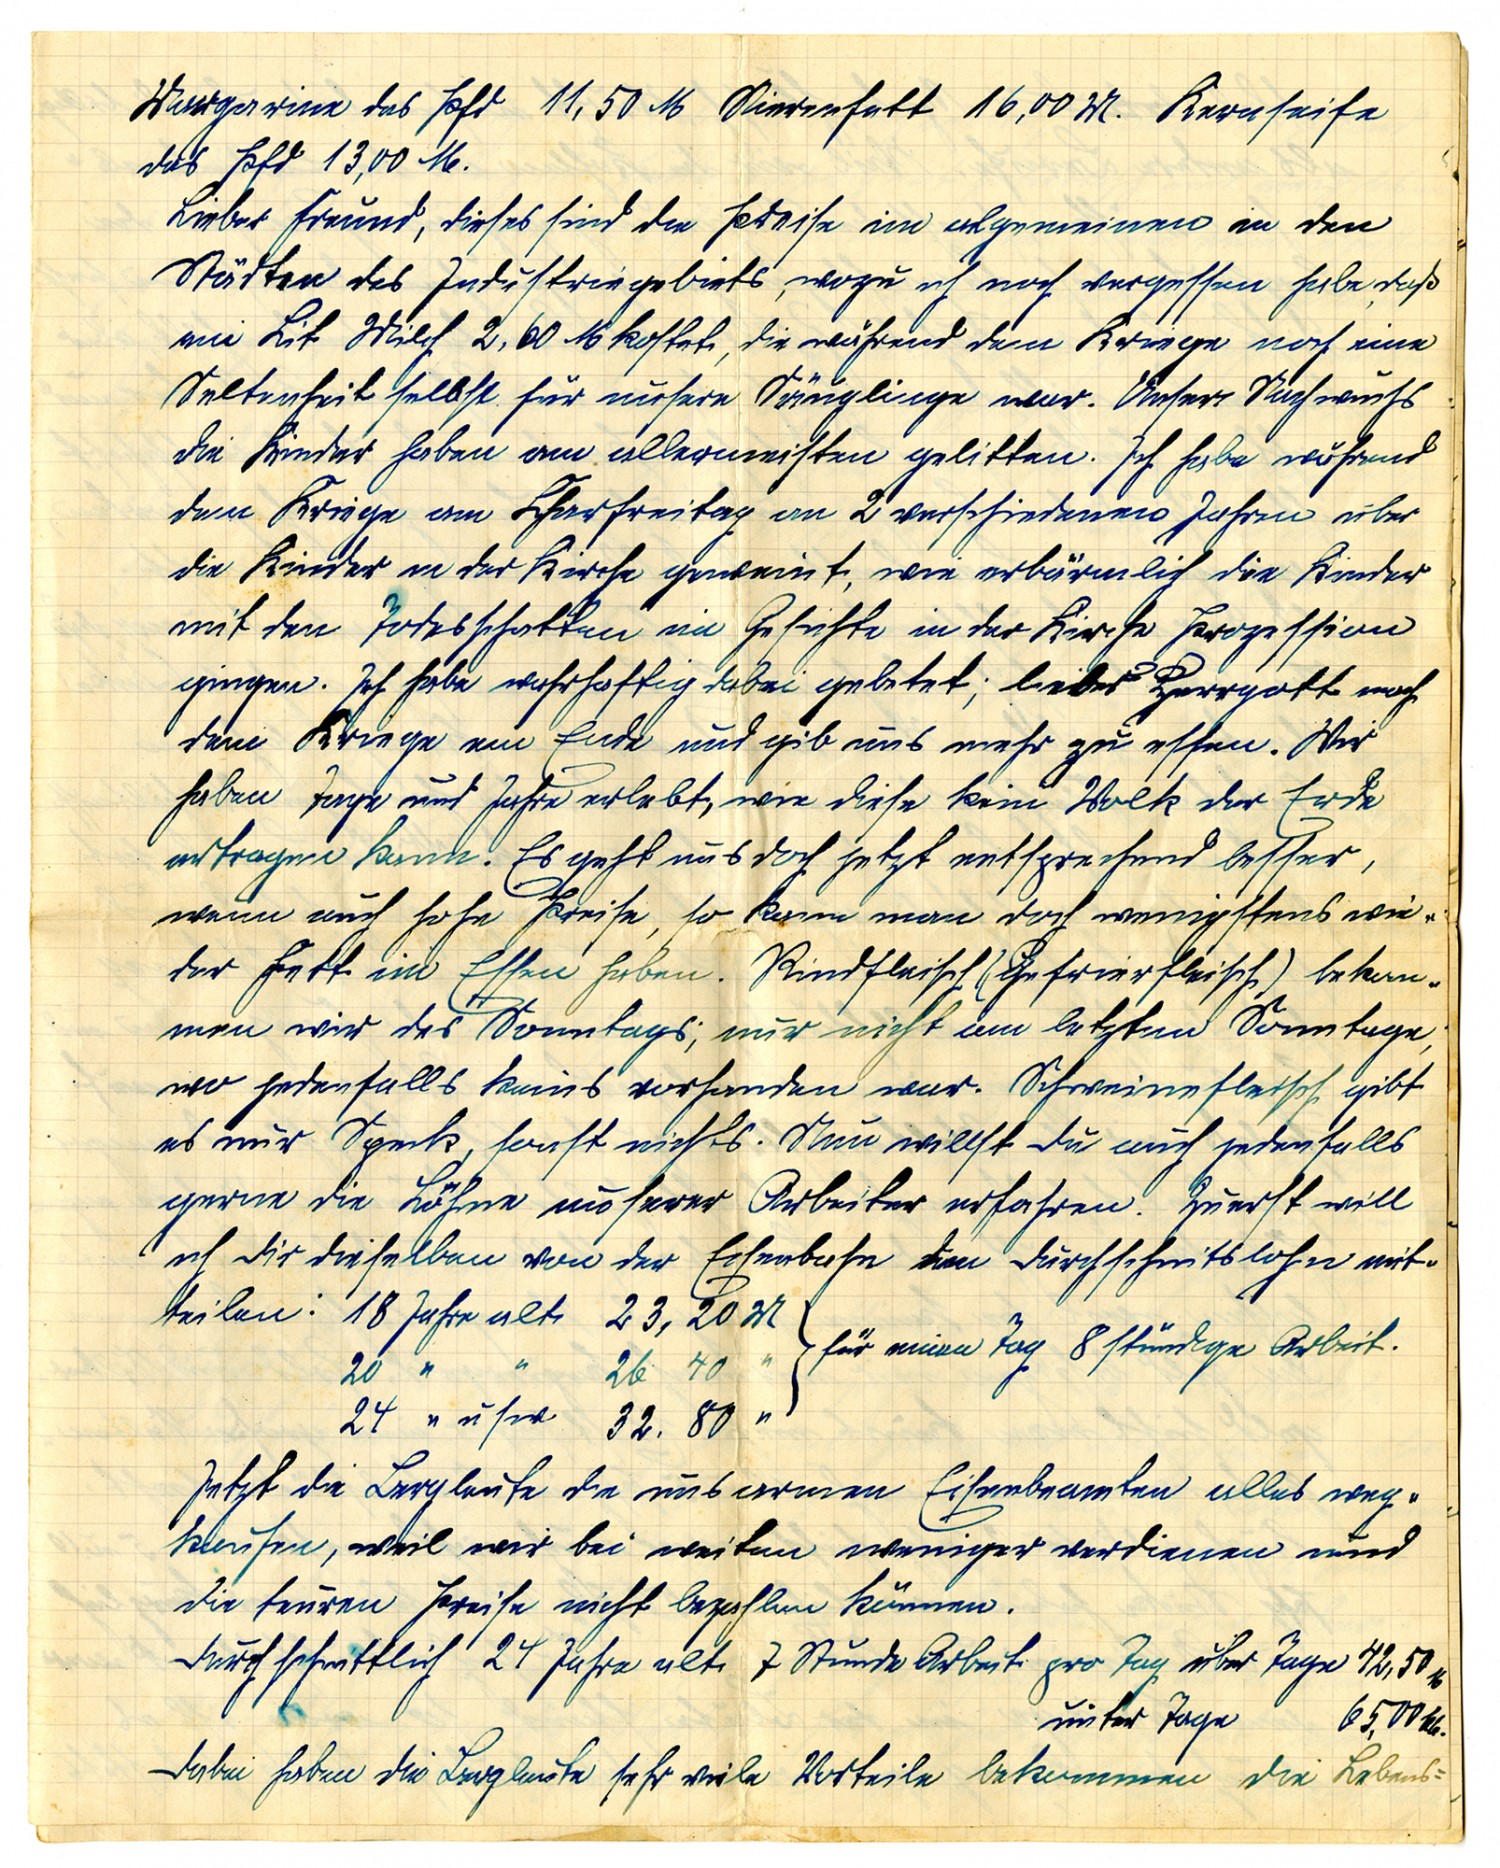 Margarine das Pfd 11,50 M Nierenfett 16,00 M. Kernseife
das Pfd 13,00 M.
Lieber Freund, dieses sind die Preise im algemeinen in den
Städten des Industriegebiets, wozu ich noch vergessen habe, daß
ein Lit Milch 2,60 M kostet, die während dem Kriege noch eine
Seltenheit selbst für unsere Säuglinge war. Unser Nachwuchs
die Kinder haben am allermeisten gelitten. Ich habe während
dem Kriege am Charfreitag an 2 verschiedenen Jahren über
die Kinder in der Kirche geweint, wie erbärmlich die Kinder
mit den Todesschatten im Gesichte in der Kirche Prozession
gingen. Ich habe wahrhaftig dabei gebetet; lieber Herrgott mach
dem Kriege ein Ende und gib uns mehr zu essen. Wir
haben Tage und Jahre erlebt, wie diese kein Volk der Erde
ertragen kann. Es geht uns doch jetzt entsprechend besser,
wenn auch hohe Preise, so kann man doch wenigstens wie-
der Fett im Essen haben. Rindfleisch (Gefrierfleisch) bekom-
men wir des Sonntags; nur nicht am letzten Sonntage,
wo jedenfalls keins vorhanden war. Schweinefleisch gibt
es nur Speck, sonst nichts. Nun willst Du auch jedenfalls
gerne die Löhne unserer Arbeiter erfahren. Zuerst will
ich Dir dieselben von der Eisenbahn den Durchschnitslohn mit-
teilen: 18 Jahre alt 23,20 M
20 " " 26 40 " für einen Tag 8 stündige Arbeit.
24 " usw 32. 80 "
Jetzt die Bergleute die uns armen Eisenbeamten alles weg-
kaufen, weil wir bei weiten weniger verdienen und
die teuren Preise nicht bezahlen können.
Durchschnittlich 24 Jahre alt 7 Stunde Arbeit pro Tag über Tage 42,50 M
unter Tage 65,00 M.
Dabei haben die Bergleute sehr viele Vorteile bekommen die Lebens=